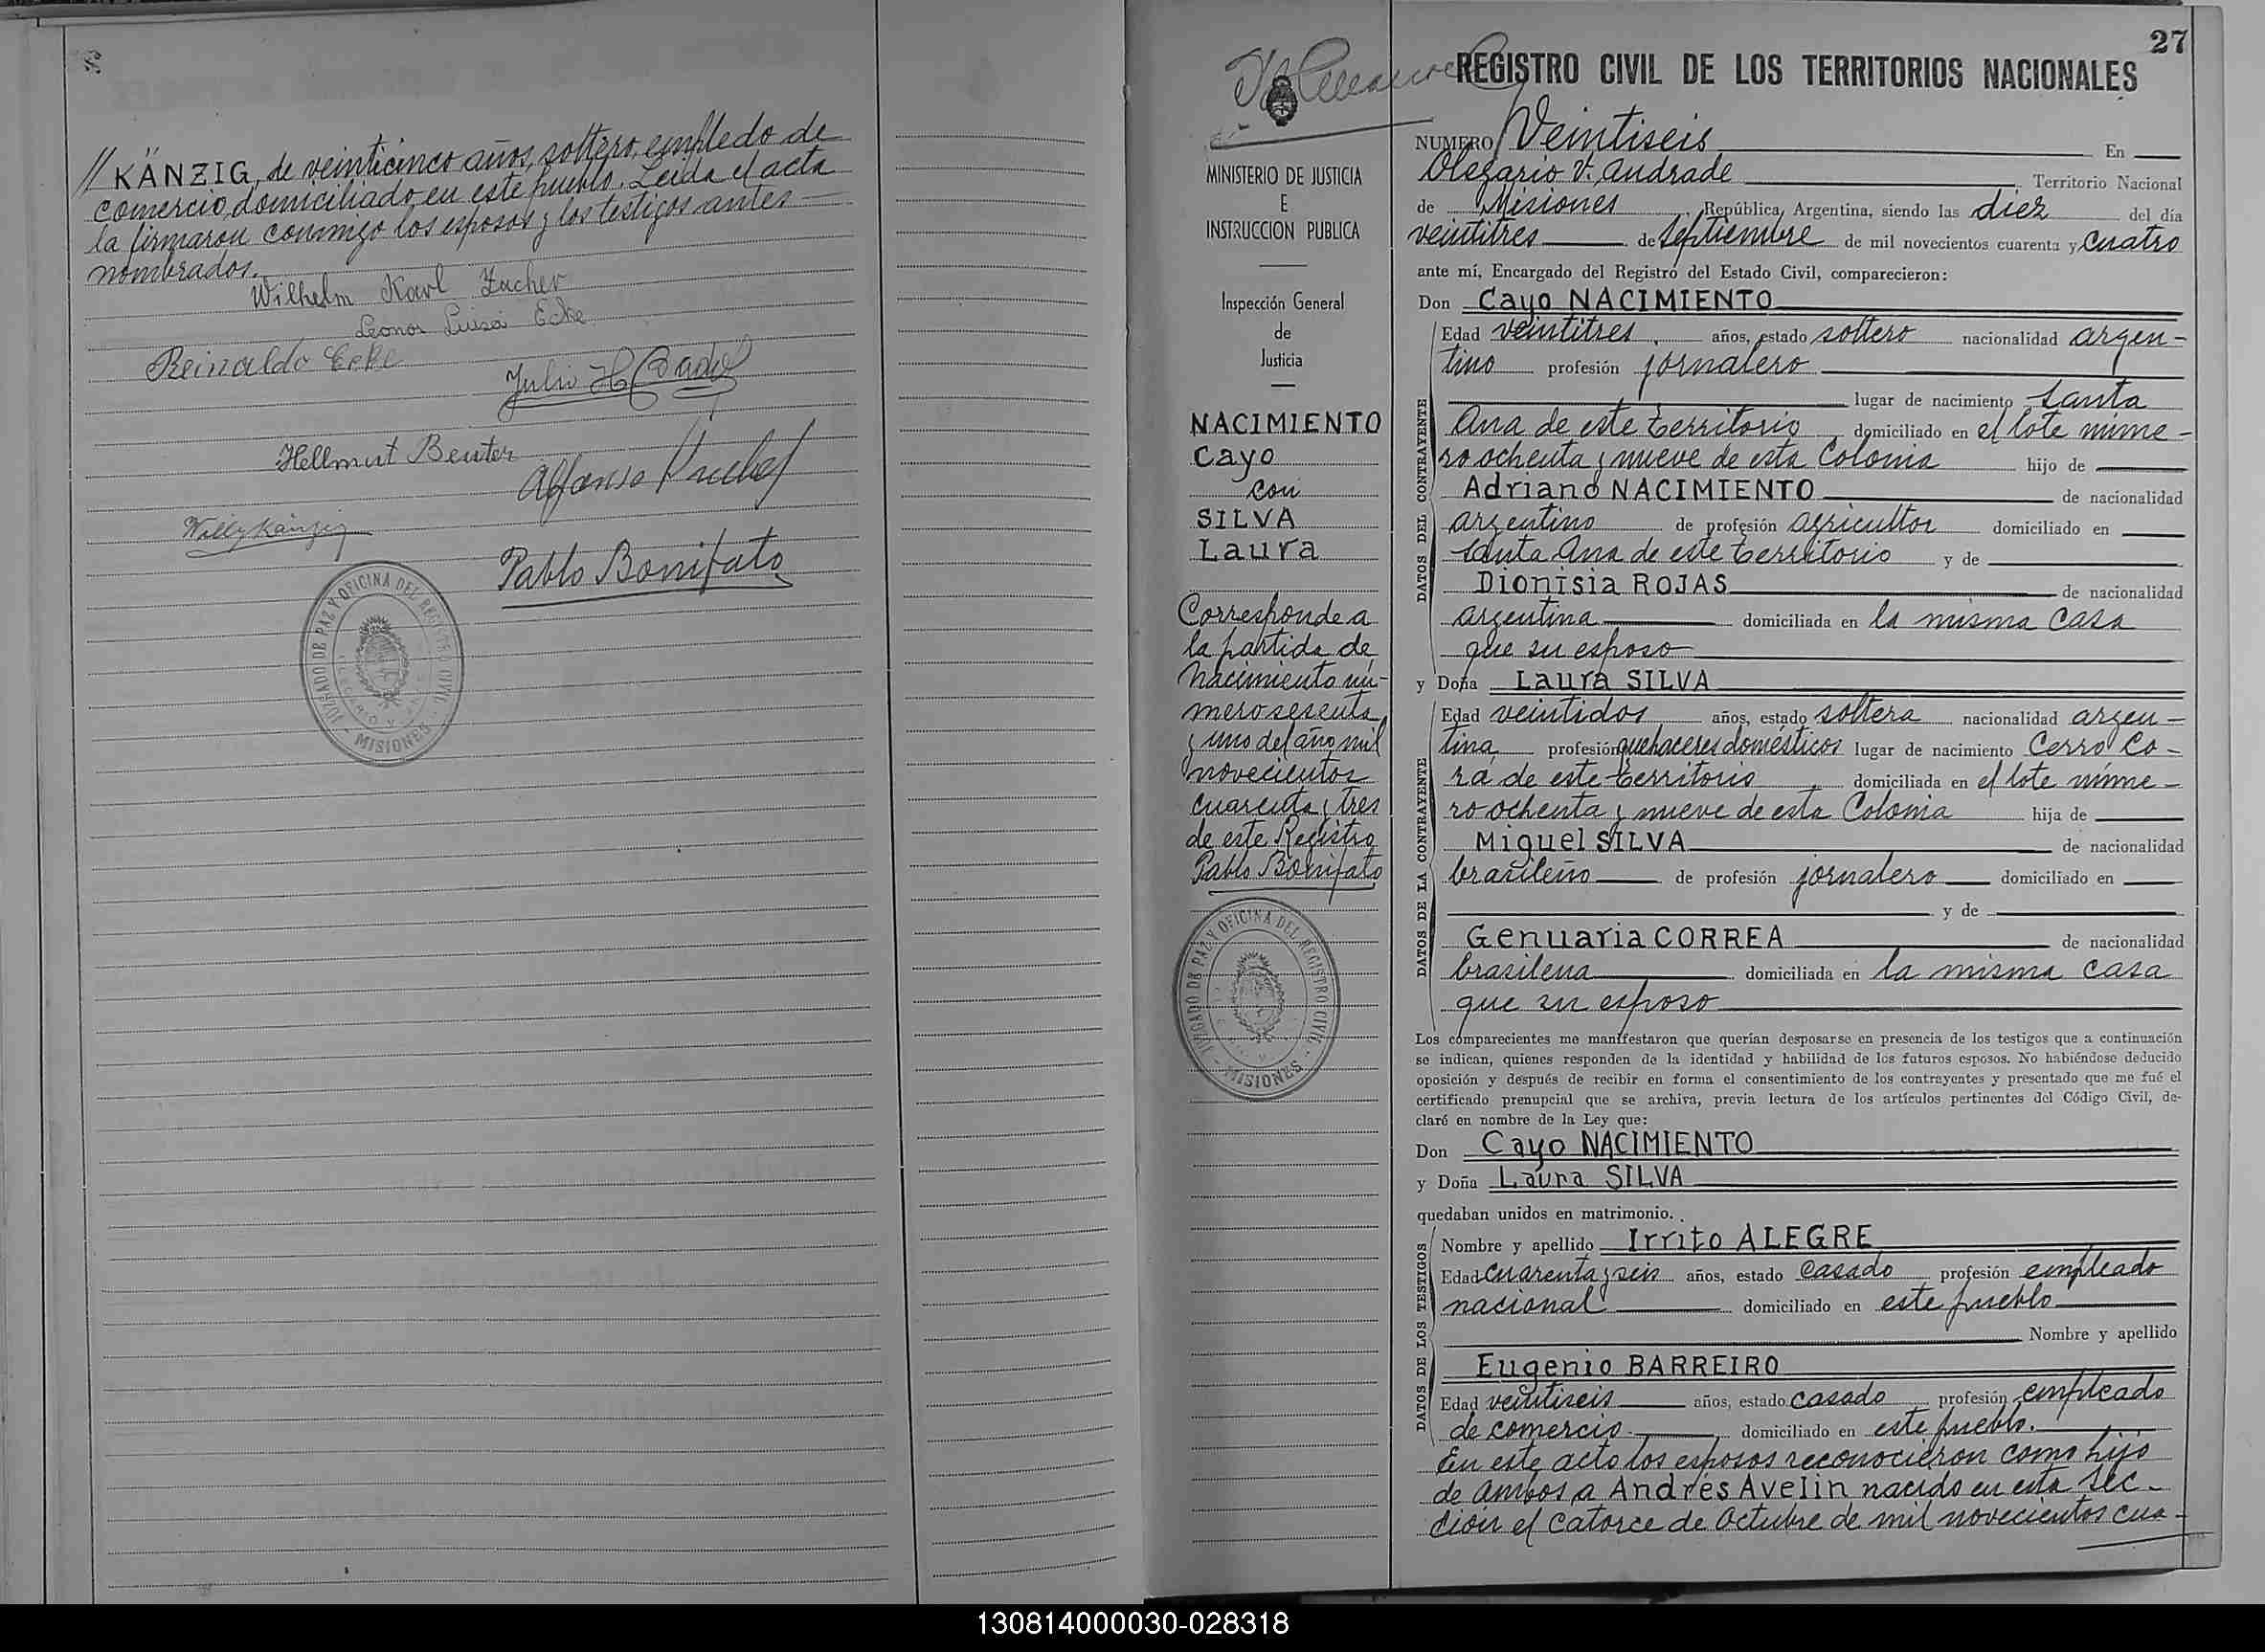 // KÄNZIG, de veinticinco años, soltero, empledo de
comercio, domiciliado en este pueblo. Leida el acta
la firmaron conmigo los esposos y los testigos antes
nombrados.
Wilhelm Karl Zacher
Leonor Luisa Ecke
Reinaldo Ecke
Julio H.
Hellmut Beuter
Alfonso
Willy Känzig
Pablo Bonifato
JUZGADO DE PAZ Y OFICINA DEL REGISTRO CIVIL
MISIONES
MINISTERIO DE JUSTICIA
E
INSTRUCCION PUBLICA
Inspección General
de
Justicia
NACIMIENTO
Cayo
con
SILVA
Laura
Corresponde a
la partida de
Nacimiento nú-
mero sesenta
y uno del año mil
novecientos
cuarenta y tres
de este Registro
Pablo Bonifato
JUZGADO DE PAZ Y OFICINA DEL REGISTRO CIVIL
MISIONES
27
REGISTRO CIVIL DE LOS TERRITORIOS NACIONALES
NUMERO Veintiseis En
Olegario V. Andrade Territorio Nacional
de Misiones República Argentina, siendo las diez del día
veintitres de Septiembre de mil novecientos cuarenta y cuatro
ante mí, Encargado del Registro del Estado Civil, comparecieron:
Don Cayo NACIMIENTO
DATOS DEL CONTRAYENTE
Edad veintitres años, estado soltero nacionalidad argen-
tino profesión jornalero
lugar de nacimiento Santa
Ana de este territorio domiciliado en el lote núme-
ro ochenta y nueve de esta Colonia hijo de
Adriano NACIMIENTO de nacionalidad
argentino de profesión agricultor domiciliado en
Santa Ana de este territorio y de
Dionisia ROJAS de nacionalidad
argentina domiciliada en la misma casa
que su esposo
y Doña Laura SILVA
DATOS DE LA CONTRAYENTE
Edad veintidos años, estado soltera nacionalidad argen-
tina profesión quehaceres domésticos lugar de nacimiento Cerro Co-
rá de este territorio domiciliada en el lote núme-
ro ochenta y nueve de esta Colonia hija de
Miguel SILVA de nacionalidad
brasileño de profesión jornalero domiciliado en
y de
Genuaria CORREA de nacionalidad
brasilena domiciliada en la misma casa
que su esposo
Los comparecientes me manifestaron que querían desposarse en presencia de los testigos que a continuación
se indican, quienes responden de la identidad y habilidad de los futuros esposos. No habiéndose deducido
oposición y después de recibir en forma el consentimiento de los contrayentes y presentado que me fué el
certificado prenupcial que se archiva, previa lectura de los artículos pertinentes del Código Civil, de-
claré en nombre de la Ley que:
Don Cayo NACIMIENTO
y Doña Laura SILVA
quedaban unidos en matrimonio.
DATOS DE LOS TESTIGOS
Nombre y apellido Irrito ALEGRE
Edad cuarenta y seis años, estado casado profesión empleado
nacional domiciliado en este pueblo
Nombre y apellido
Eugenio BARREIRO
Edad veintiseis años, estado casado profesión empleado
de comercio domiciliado en este pueblo.
En este acto los esposos reconocieron como hijo
de ambos a Andrés Avelin nacido en esta sec-
cion el catorce de Octubre de mil novecientos cua-
130814000030-028318